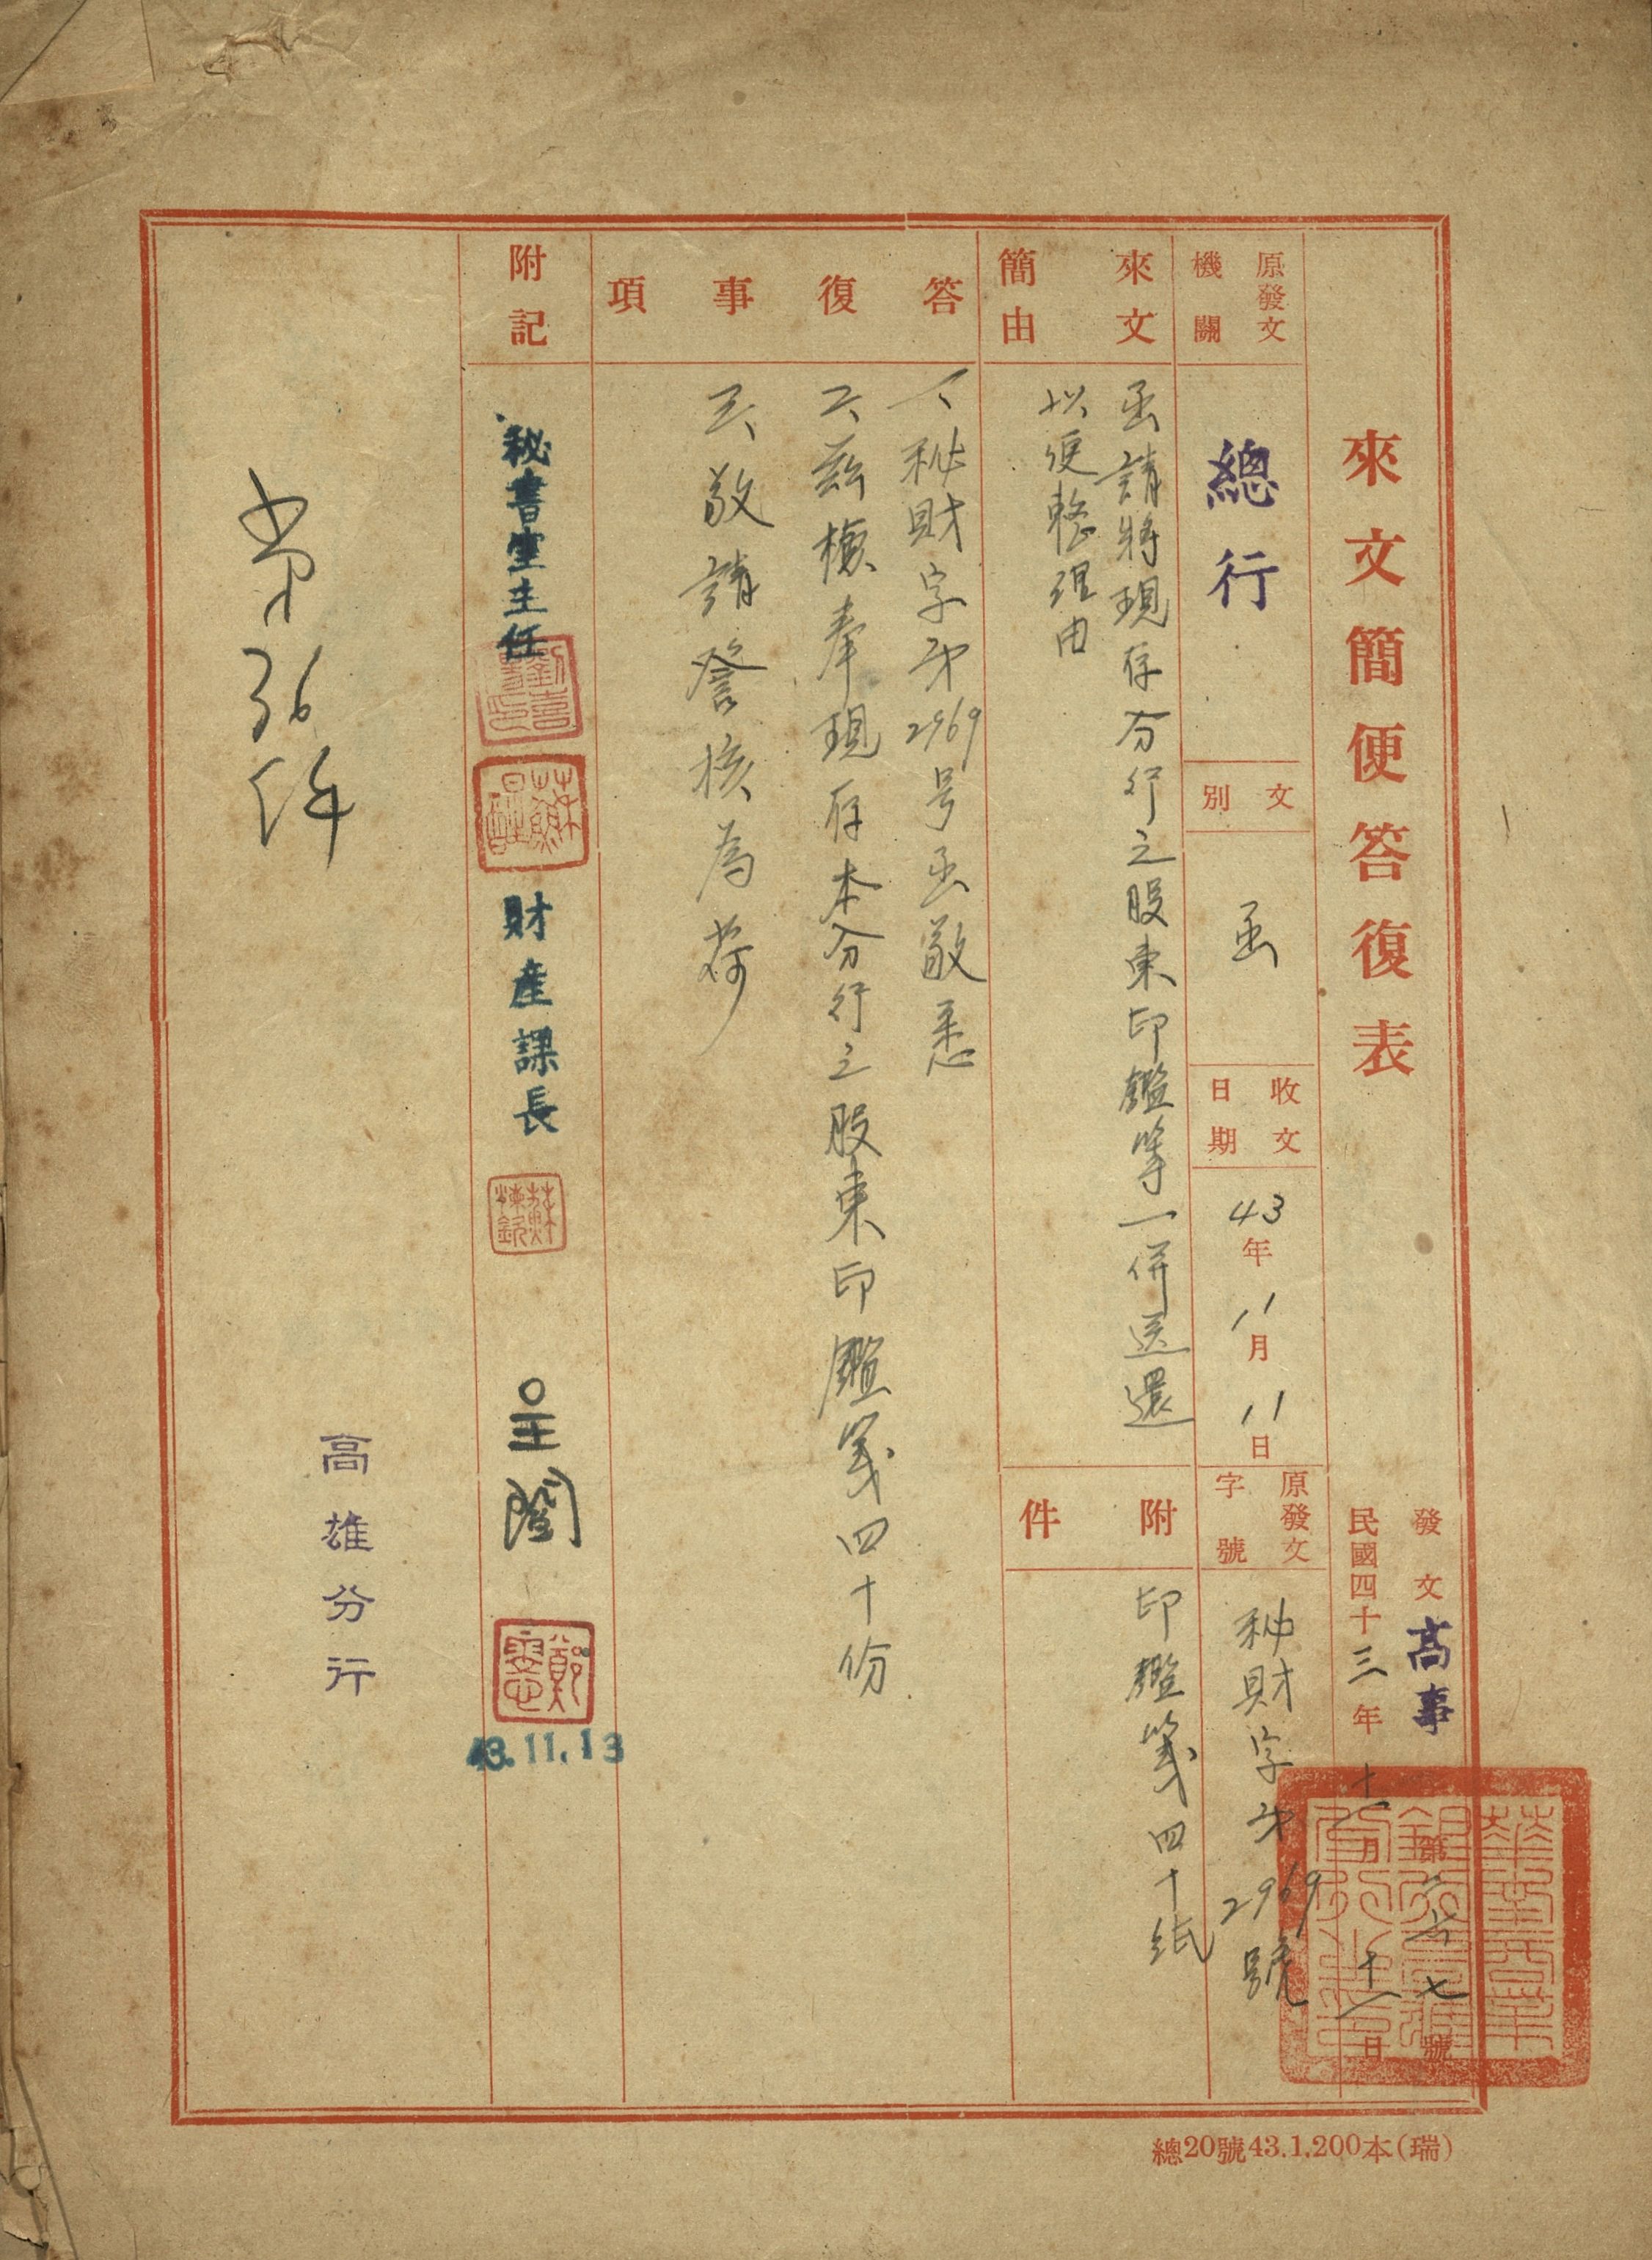 來文簡便答復表
發文高事第六七號
民國四十三年十一月十一日
原發文機關
總行
文別
函
收文日期
43年11月11日
原發文字號
秘財字第2969號
來文簡由
函請將現存分行之股東印鑑等一併送還
以便整理由
附件
印鑑箋四十紙
答復事項
一、秘財字第2969号函敬悉
二、茲檢奉現存本分行之股東印鑑箋四十份
三、敬請詧核為荷
附記
秘書室主任
財產課長
呈閱
43.11.13
第36件
高雄分行
總20號43.1.200本(瑞)